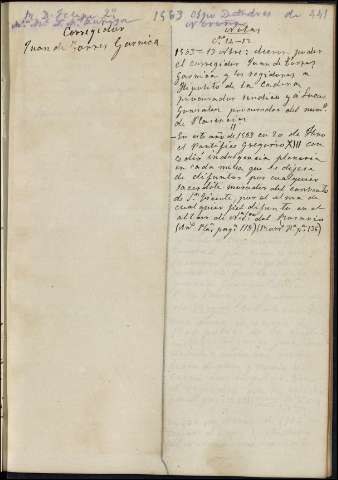 R. D. Felipe 2º
1583 Obpo D. Andres de 441
Noroña
Corregidor
Juan de Torres Garnica
Notas
1583 - 13 Nbre: dieron poder
el corregidor Juan de Torres
Garnica y los regidores a
Hipolito de la Cadena
procurador sindico y a Lucas
Gonzalez procurador del num.º
de Plasencia
II
- En este año de 1583 en 20 de Fbro
el Pontifice Gregorio XIII con
cedió indulgencia plenaria
en cada misa que se dijese
de difuntos por cualquier
sacerdote morador del convento
de Sn. Vicente por el alma de
cualquier fiel difunto en el
altar de Nª Sª del Rosario